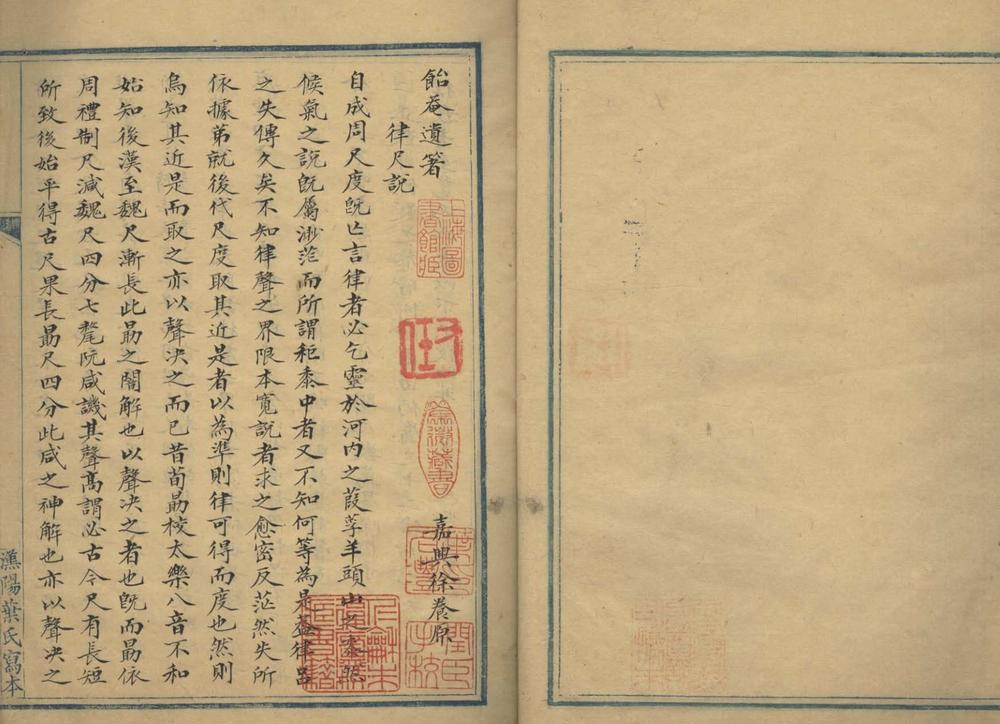 飴菴遺箸
嘉興徐養原
律尺說
自成周尺度旣亡言律者必乞靈於河内之葭莩羊頭山之黍然
候氣之說旣屬渺茫而所謂秬黍中者又不知何等為是葢律呂
之失傳久矣不知律聲之界限本寬說者求之愈密反茫然失所
依據苐就後代尺度取其近是者以為準則律可得而度也然則
烏知其近是而取之亦以聲决之而已昔荀勗校太樂八音不和
始知後漢至魏尺漸長此勗之闇解也以聲决之者也旣而勗依
周禮制尺減魏尺四分七氂阮咸譏其聲髙謂必古今尺有長短
所致後始平得古尺果長勗尺四分此咸之神解也亦以聲决之
漁陽葉氏寫本
上海圖書館藏